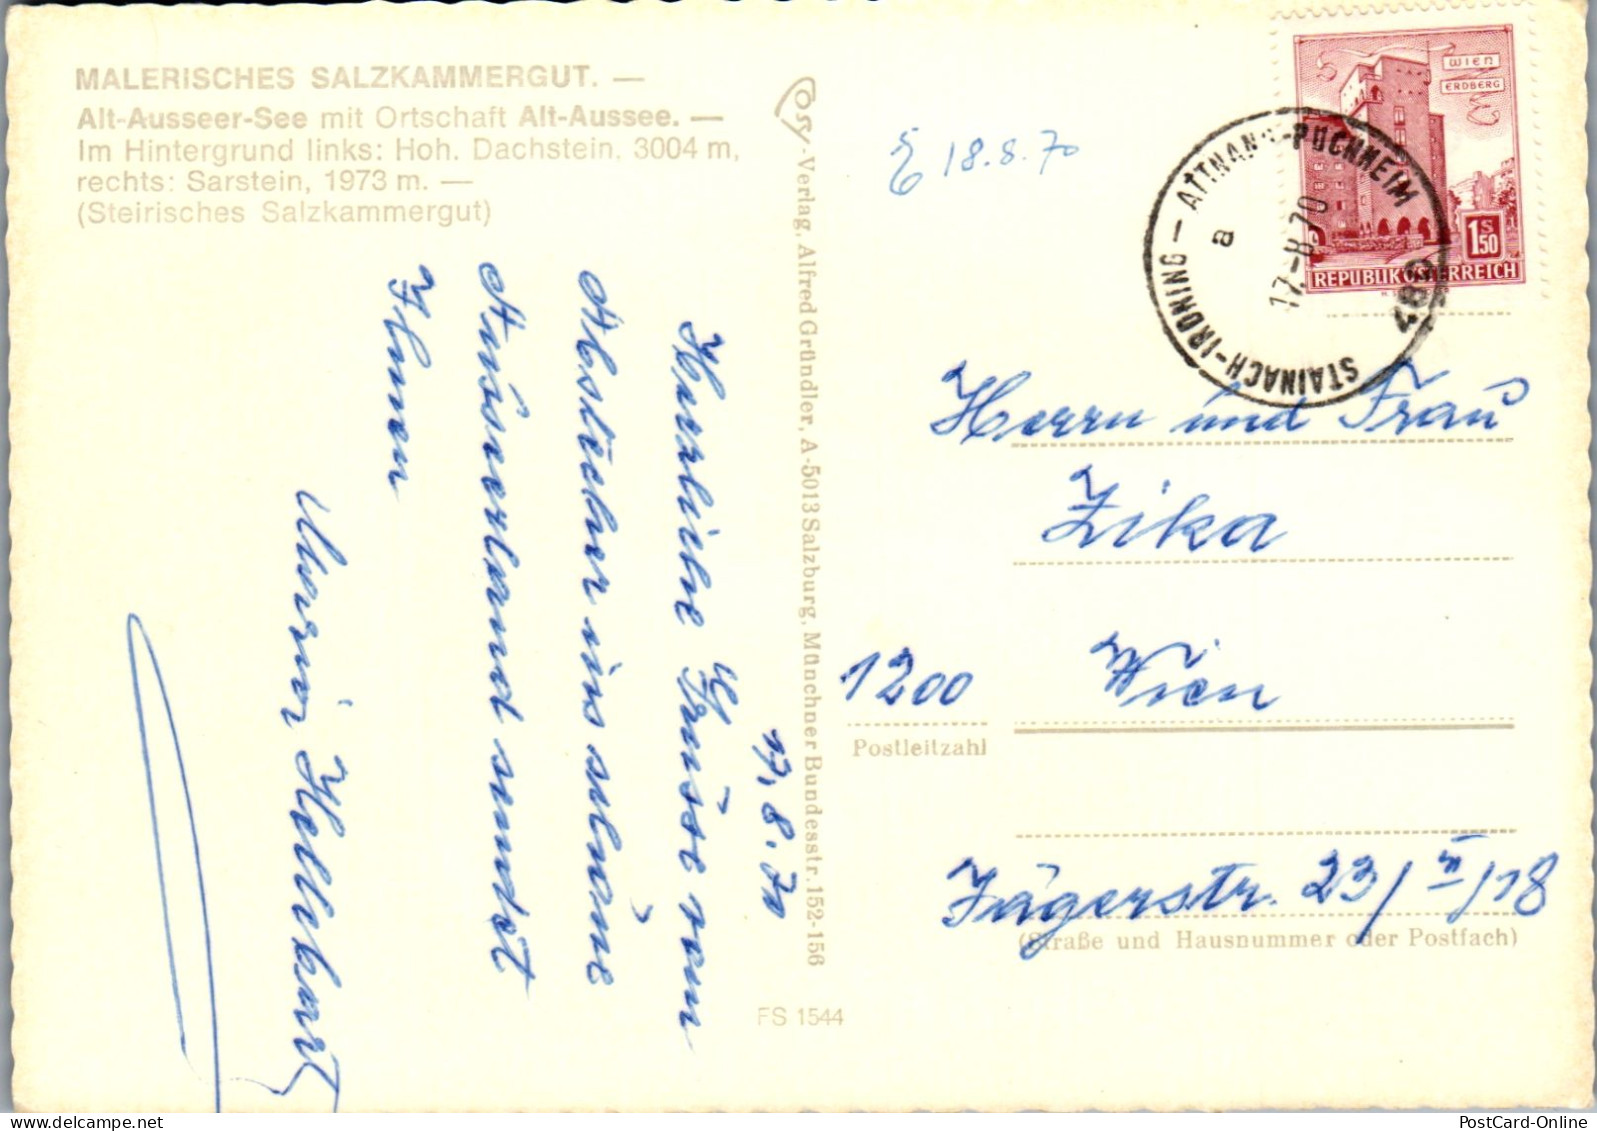 MALERISCHES SALZKAMMERGUT. —
Alt-Ausseer-See mit Ortschaft Alt-Aussee. —
Im Hintergrund links: Hoh. Dachstein, 3004 m,
rechts: Sarstein, 1973 m. —
(Steirisches Salzkammergut)
17.8.70
Herzliche Grüsse vom
Abstecher ins schöne
Ausserland sendet
Ihnen
Hellebart
Cosy-Verlag, Alfred Gründler, A-5013 Salzburg, Münchner Bundesstr. 152-156
FS 1544
18.8.70
WIEN
ERDBERG
1 S 50
REPUBLIK ÖSTERREICH
STAINACH-IRDNING — ATTNANG-PUCHHEIM
a
17.-8.70
489
Herrn und Frau
Zika
1200 Wien
Postleitzahl
Jägerstr. 23/II/18
(Straße und Hausnummer oder Postfach)
PostCard-Online